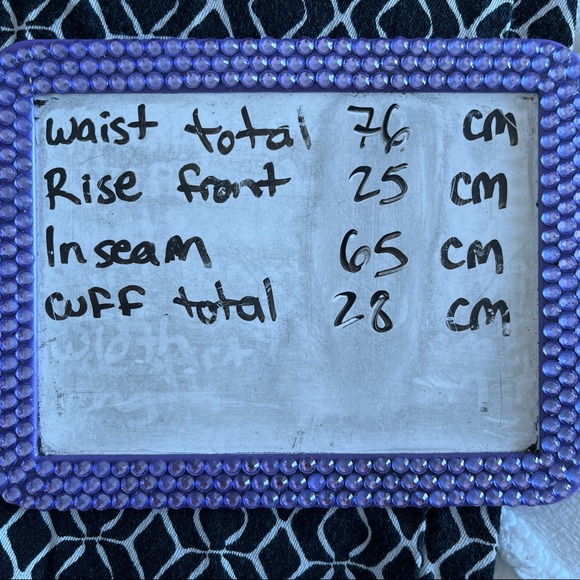 waist total 76 cm
Rise front 25 cm
Inseam 65 cm
cuff total 28 cm
width